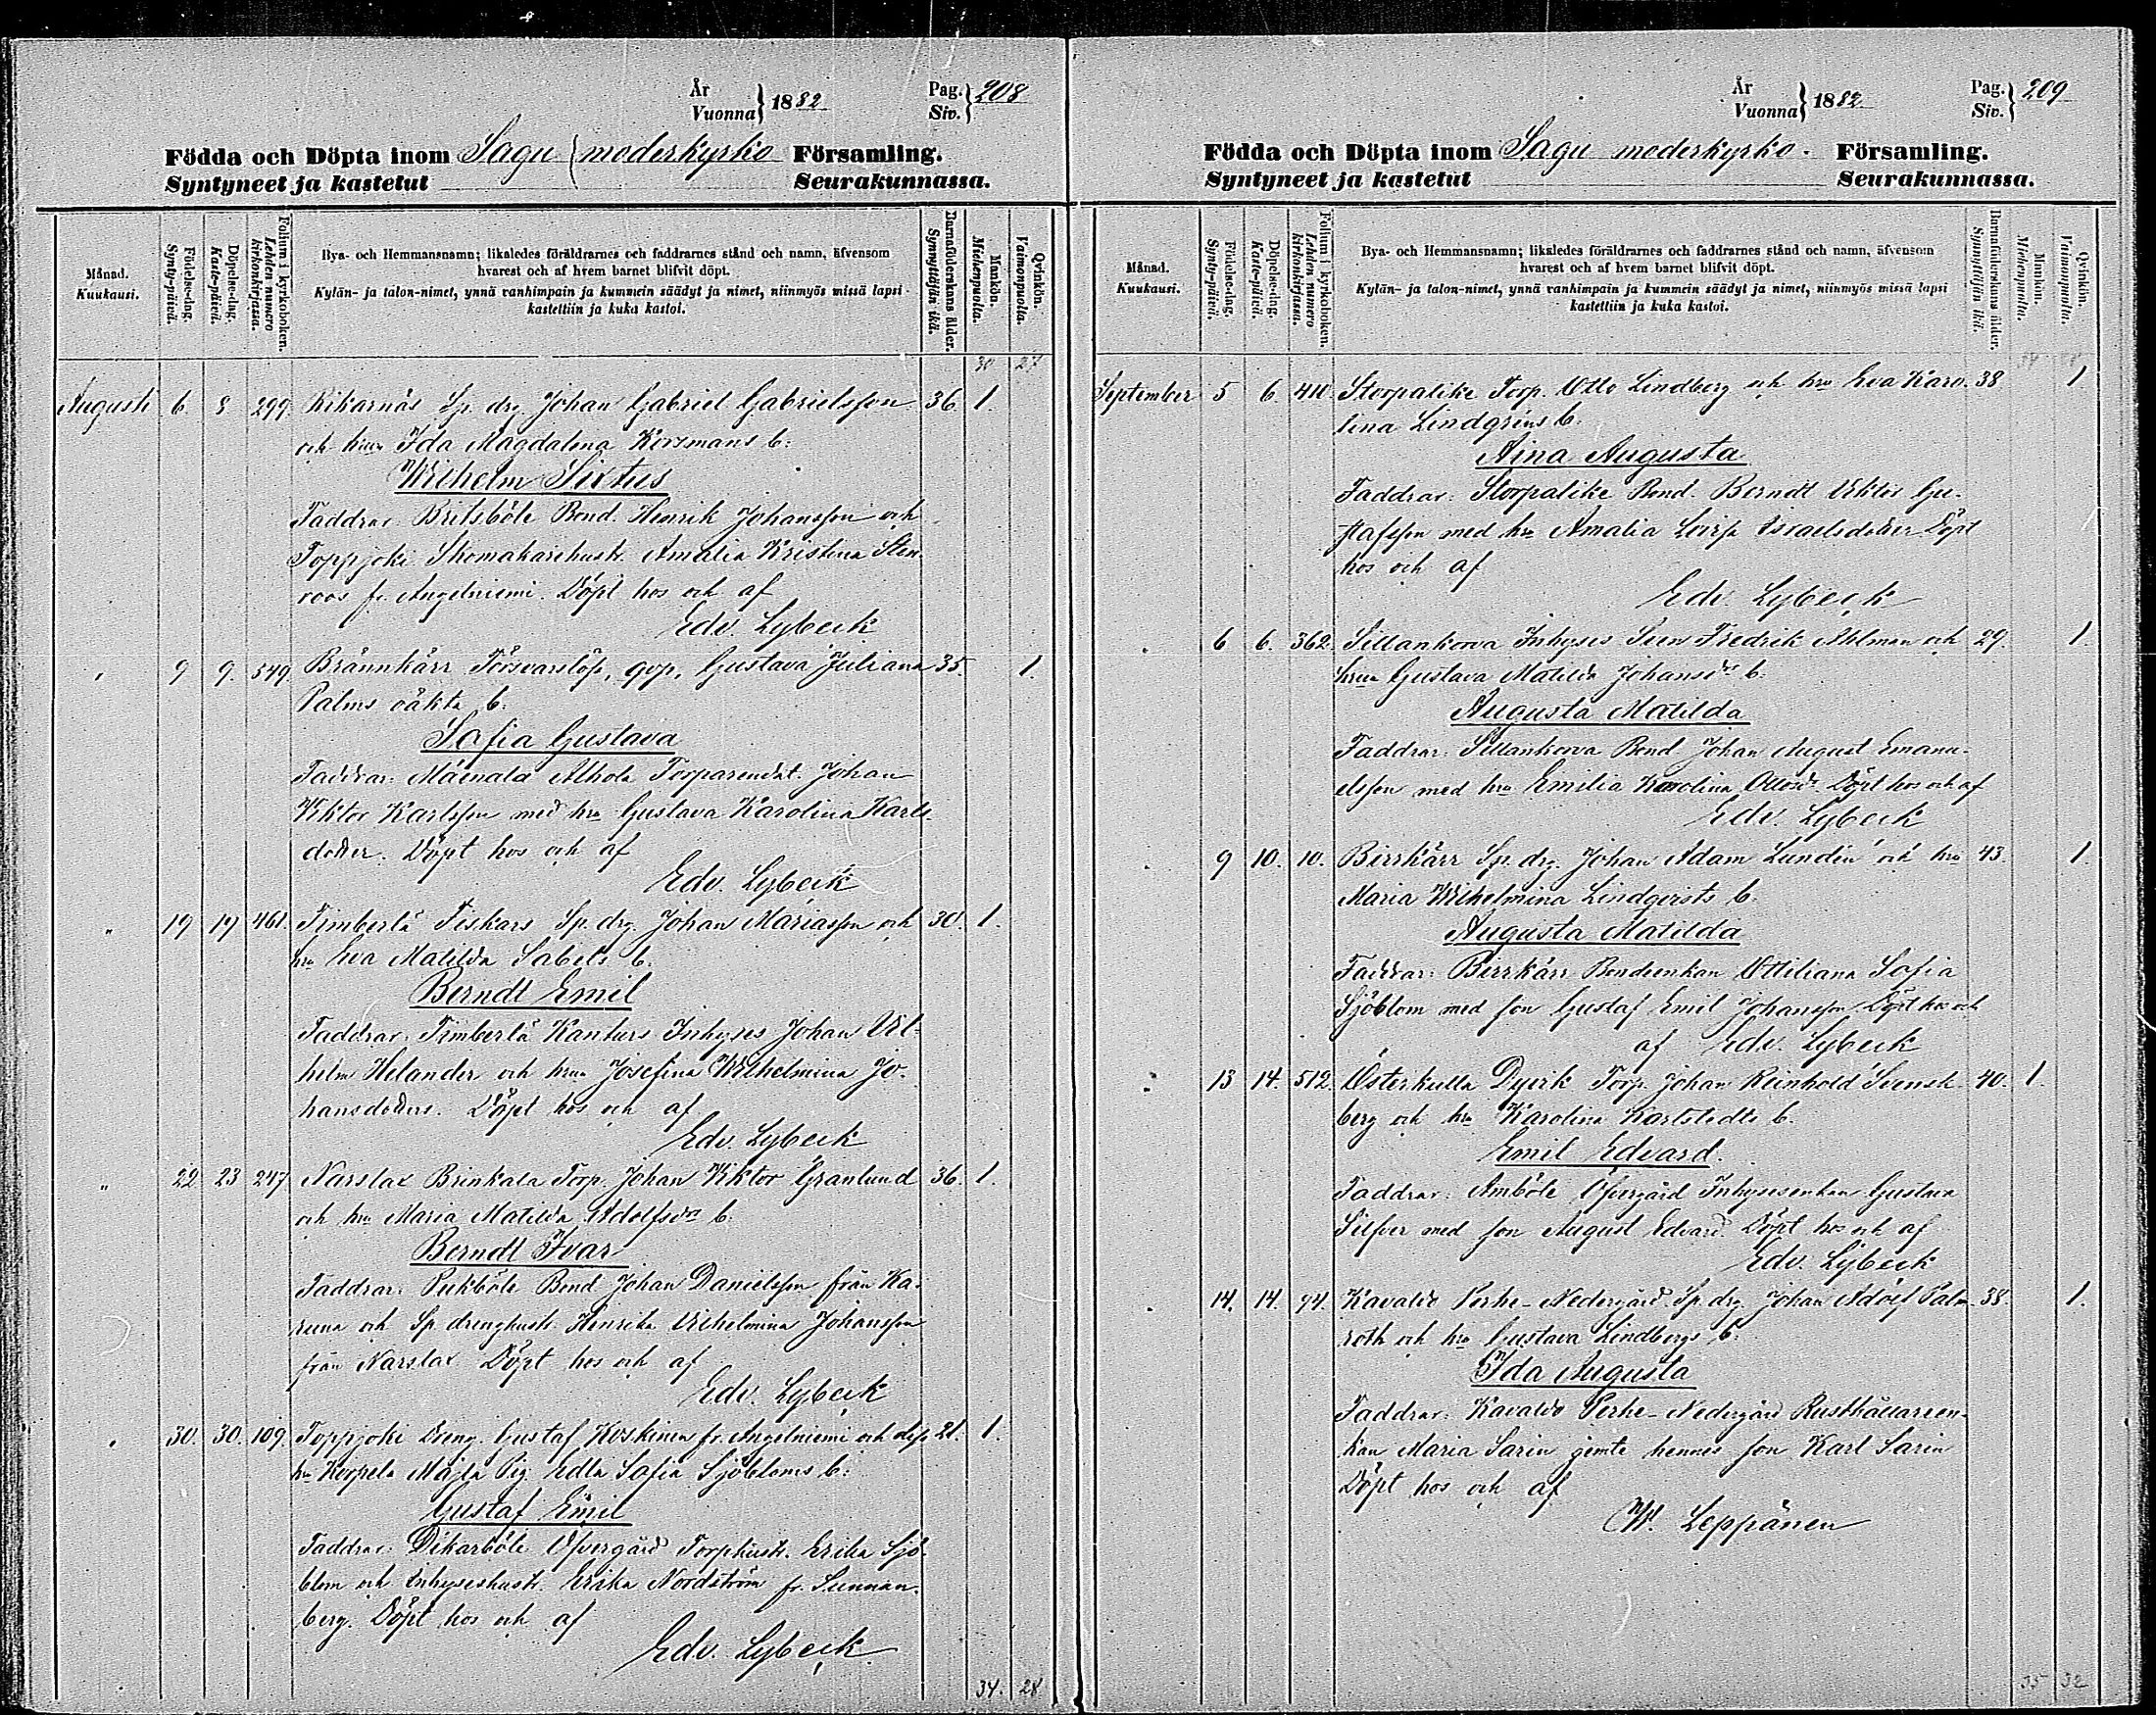 År
Vuonna } 1882
Pag.
Siv. } 208
Födda och Döpta inom Sagu moderkyrko Församling.
Syntyneet ja kastetut Seurakunnassa.
Månad.
Kuukausi.
Födelse-dag.
Synty-päivä.
Döpelse-dag.
Kaste-päivä.
Folium i kyrkoboken.
Lehden numero kirkonkirjassa.
Bya- och Hemmansnamn; likaledes föräldrarnes och faddrarnes stånd och namn, äfvensom
hvarest och af hvem barnet blifvit döpt.
Kylän- ja talon-nimet, ynnä vanhimpain ja kummein säädyt ja nimet, niinmyös missä lapsi
kastettiin ja kuka kastoi.
Barnaföderskans ålder.
Synnyttäjän ikä.
Mankön.
Miehenpuolia.
Qvinkön.
Vaimonpuolia.
30 27
Augusti 6 8 299 Rikarnäs Sp. drg. Johan Gabriel Gabrielsson 36. 1.
och hru Ida Magdalena Korsmans b:
Wilhelm Sixtus
Faddrar: Britsböle Bond. Henrik Johansson och
Toppjoki Skomakarehustr. Amalia Kristina Sten-
roos fr. Angelniemi. Döpt hos och af
Edv. Lybeck
" 9 9. 549. Brännkärr Försvarslös, qvp. Gustava Juliana 35. 1.
Palms oäkta b:
Sofia Gustava
Faddrar: Mainala Alhola Torparendat. Johan
Viktor Karlsson med hru Gustava Karolina Karls-
dotter. Döpt hos och af
Edv. Lybeck
" 19 19 461. Timberlä Fiskars Sp. drg. Johan Mariasson och 30. 1.
hru Eva Matilda Sabels b.
Berndt Emil
Faddrar: Timberlä Kanturs Inhyses Johan Vil-
helm Helander och hru Josefina Wilhelmina Jo-
hansdotters. Döpt hos och af
Edv. Lybeck
" 22 23 247 Narslax Brinkala Torp. Johan Viktor Granlund 36. 1.
och hru Maria Matilda Adolfsdr b.
Berndt Ivar
Faddrar: Pukböle Bond Johan Danielsson från Ka-
runa och Sp. drenghustr. Henrika Vilhelmina Johansson
från Narslax Döpt hos och af
Edv. Lybeck
" 30. 30. 109. Toppjoki Dreng. Gustaf Koskinen fr. Angelniemi och dess 21. 1.
hru Korpela Majla Pig. Edla Sofia Sjöbloms b:
Gustaf Emil
Faddrar: Dikarböle Ofvergård Torphustr. Erika Sjö-
blom och Inhyseshustr. Erika Nordström fr. Sunnan-
berg. Döpt hos och af
Edv. Lybeck.
34. 28
År
Vuonna } 1882
Pag.
Siv. } 209
Födda och Döpta inom Sagu moderkyrko. Församling.
Syntyneet ja kastetut Seurakunnassa.
Månad.
Kuukausi.
Födelse-dag.
Synty-päivä.
Döpelse-dag.
Kaste-päivä.
Folium i kyrkoboken.
Lehden numero kirkonkirjassa.
Bya- och Hemmansnamn; likaledes föräldrarnes och faddrarnes stånd och namn, äfvensom
hvarest och af hvem barnet blifvit döpt.
Kylän- ja talon-nimet, ynnä vanhimpain ja kummein säädyt ja nimet, niinmyös missä lapsi
kastettiin ja kuka kastoi.
Barnaföderskans ålder.
Synnyttäjän ikä.
Mankön.
Miehenpuolia.
Qvinkön.
Vaimonpuolia.
September 5 6 410. Storpalike Torp. Otto Lindberg och hru Eva Karo- 38 1
lina Lindgréns b.
Aina Augusta
Faddrar: Storpalike Bond. Berndt Viktor Gu-
stafsson med hru Amalia Lovisa Israelsdotter Döpt
hos och af
Edv. Lybeck
" 6 6. 362. Sillankorva Inhyses Sven Fredrik Ahlman och 29. 1.
hru Gustava Matilda Johansdr b.
Augusta Matilda
Faddrar: Sillankorva Bond Johan August Emanu-
elsson med hru Emilia Karolina Ottosdr Döpt hos och af
Edv. Lybeck
" 9 10. 10. Birrkärr Sp. drg. Johan Adam Lundin och hru 43. 1.
Maria Wilhelmina Lindqvists b.
Augusta Matilda
Faddrar: Birrkärr Bondeenkan Ottiliana Sofia
Sjöblom med son Gustaf Emil Johansson Döpt hos och
af Edv. Lybeck
" 13 14. 512. Österkulla Dyvik Torp. Johan Reinhold Svensk- 40. 1.
berg och hru Karolina Karlstedts b.
Emil Edvard.
Faddrar: Amböle Ofvergård Inhysesenkan Gustava
Silfver med son August Edvard. Döpt hos och af
Edv. Lybeck
" 14. 14. 94. Kavaldo Perhe-Nedergård Sp. drg. Johan Adolf Palm- 38. 1.
roth och hru Gustava Lindbergs b.
Ida Augusta
Faddrar: Kavaldo Perhe-Nedergård Rusthållareen-
kan Maria Sarin jemte hennes son Karl Sarin
Döpt hos och af
W. Leppänen
35 32